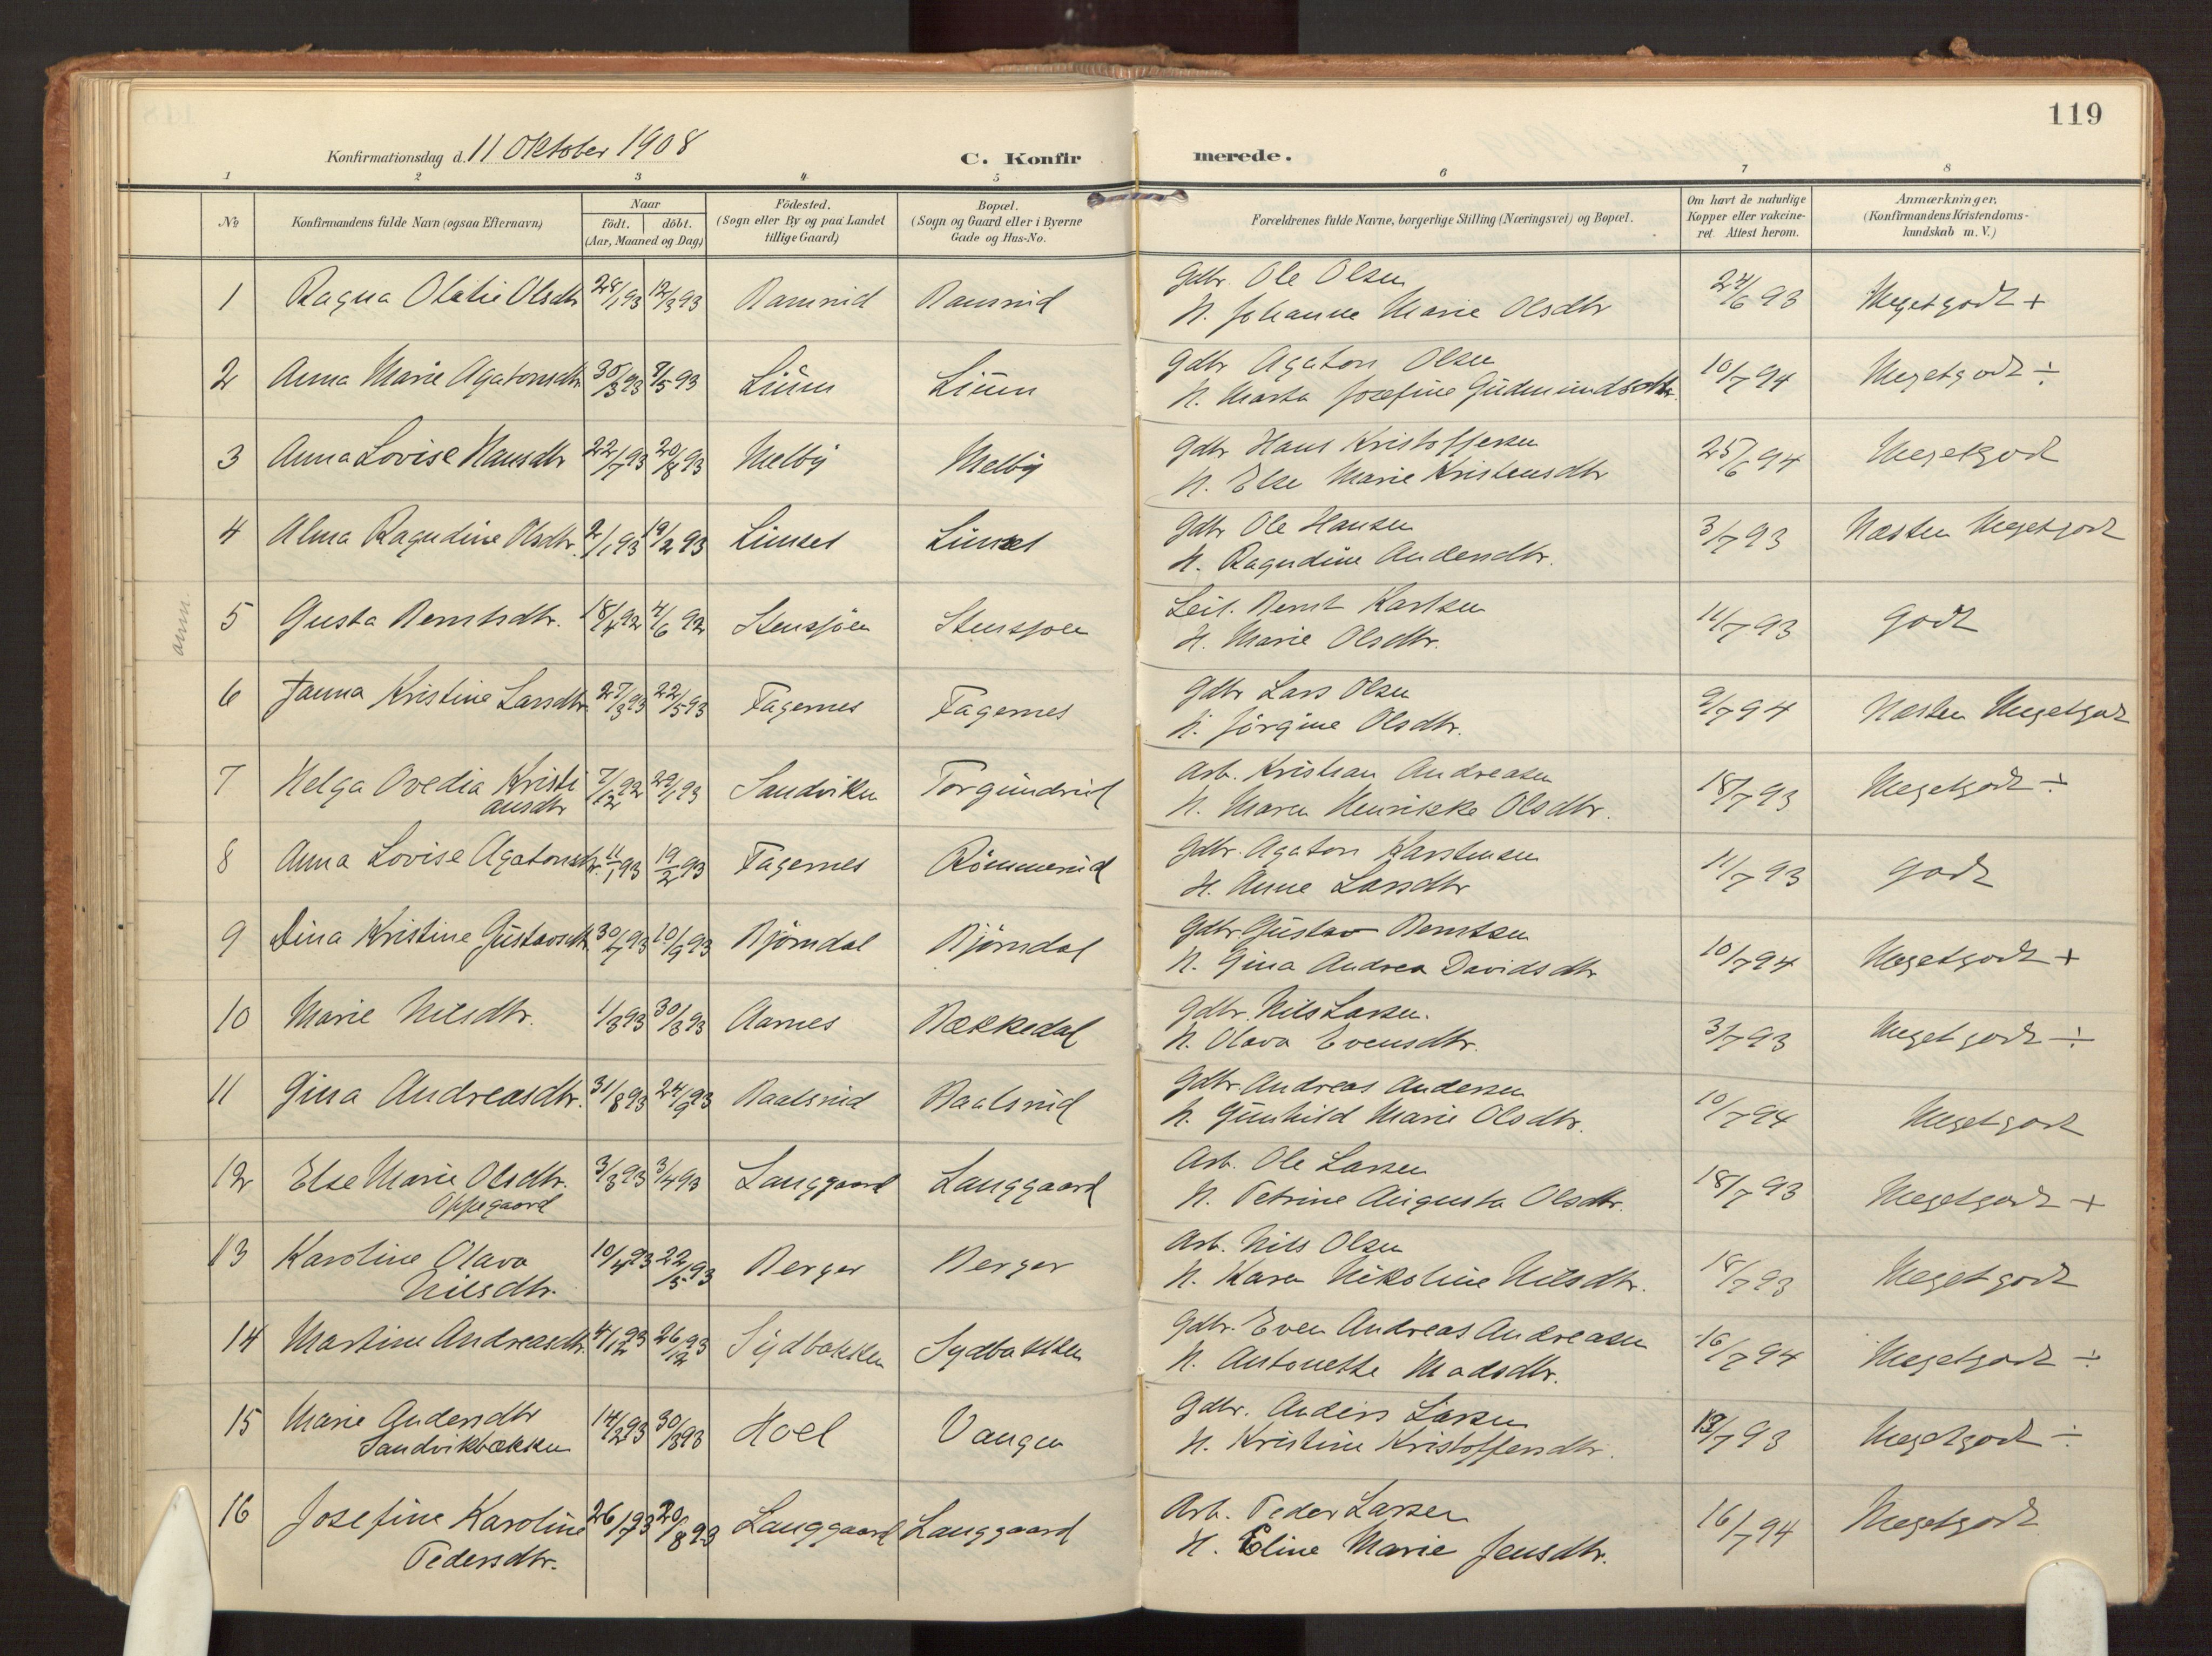 119
Konfirmationsdag d. 11 Oktober 1908
C. Konfirmerede.
1 2 3 4 5 6 7 8
No
Konfirmandens fulde Navn (ogsaa Efternavn)
Naar
födt. döbt.
(Aar, Maaned og Dag)
Födested.
(Sogn eller By og paa Landet
tillige Gaard)
Bopæl.
(Sogn og Gaard eller i Byerne
Gade og Hus-No.
Forældrenes fulde Navne, borgerlige Stilling (Næringsvei) og Bopæl.
Om havt de naturlige
Kopper eller vakcine-
ret. Attest herom.
Anmærkninger,
(Konfirmandens Kristendoms-
kundskab m. V.)
1 Ragna Olatie Olsdtr 28/1 93 12/3 93 Gdbr. Ole Olsen
H. Johanne Marie Olsdtr 24/6 93 Megetgodt +
2 Anna Marie Agatonsdtr 30/3 93 Lium Lium Gdbr Agaton Olsen
H. Marta Josefine Gudmundsdtr. 10/7 94 Megetgodt ÷
3 Anna Lovise Hansdtr 22/7 93 20/8 93 Melby Melby Gdbr Hans Kristoffersen
H. Else Marie Kristensdtr 25/6 94 Megetgodt
4 Alma Ragndine Olsdtr. 2/1 93 19/2 93 Limset Limset Gdbr Ole Hansen
H. Ragndine Andersdtr. 3/7 93 Næsten Megetgodt
5 Gusta Berntsdtr. 18/4 92 4/6 92 Stensjöen Stensjoen Leil. Bernt Karlsen
H. Marie Olsdtr. 11/7 93 Godt
6 Janna Kristine Larsdtr 27/3 93 22/5 93 Fagernes Fagernes Gdbr Lars Olsen
H. Jörgine Olsdtr. 9/7 94 Næsten Megetgodt
7 Helga Ovedia Kristi
ansdtr 7/12 92 29/1 93 Sandviken Torgundrud Arb. Kristian Andreasen
H. Maren Henrikke Olsdtr. 18/7 93 Megetgodt ÷
8 Anna Lovise Agatonsdtr. 11/1 93 19/2 93 Fagernes Römmerud Gdbr. Agaton Karstensen
H. Anne Larsdtr 11/7 93 Godt
9 Dina Kristine Gustavsdtr 30/7 93 10/9 93 Björndal Björndal Gdbr Gustav Berntsen
H. Gina Andrea Davidsdtr 10/7 94 Megetgodt +
10 Marie Nilsdtr. 1/3 93 30/3 93 Aarnes Bækkedal Gdbr. Nils Larsen.
H. Olava Evensdtr. 3/7 93 Megetgodt ÷
11 Gina Andreasdtr. 31/8 93 24/9 93 Baalsrud Baalsrud Gdbr. Andreas Andersen
H. Gunhild Marie Olsdtr. 10/7 94 Megetgodt
12 Else Marie Olsdtr.
Oppegaard 3/3 93 3/4 93 Langgaard Langgaard Arb. Ole Larsen
H. Petrine Augusta Olsdtr. 18/7 93 Megetgodt +
13 Karoline Olava
Nilsdtr. 10/4 93 22/5 93 Berger Berger Arb. Nils Olsen
H. Karen Nikoline Nilsdtr. 18/7 93 Megetgodt
14 Martine Andreasdtr. 4/12 93 26/12 93 Sydbakken Sydbakken Gdbr. Even Andreas Andreasen
H. Antonette Madsdtr. 16/7 94 Megetgodt ÷
15 Marie Andersdtr
Sandvikbækken 14/2 93 30/3 93 Hoel Vangen Gdbr. Anders Larsen
H. Kristine Kristoffersdtr. 13/7 93 Megetgodt ÷
16 Josefine Karoline
Pedersdtr. 26/7 93 20/8 93 Langgaard Langgaard Arb. Peder Larsen
H. Eline Marie Jensdtr. 16/7 94 Megetgodt